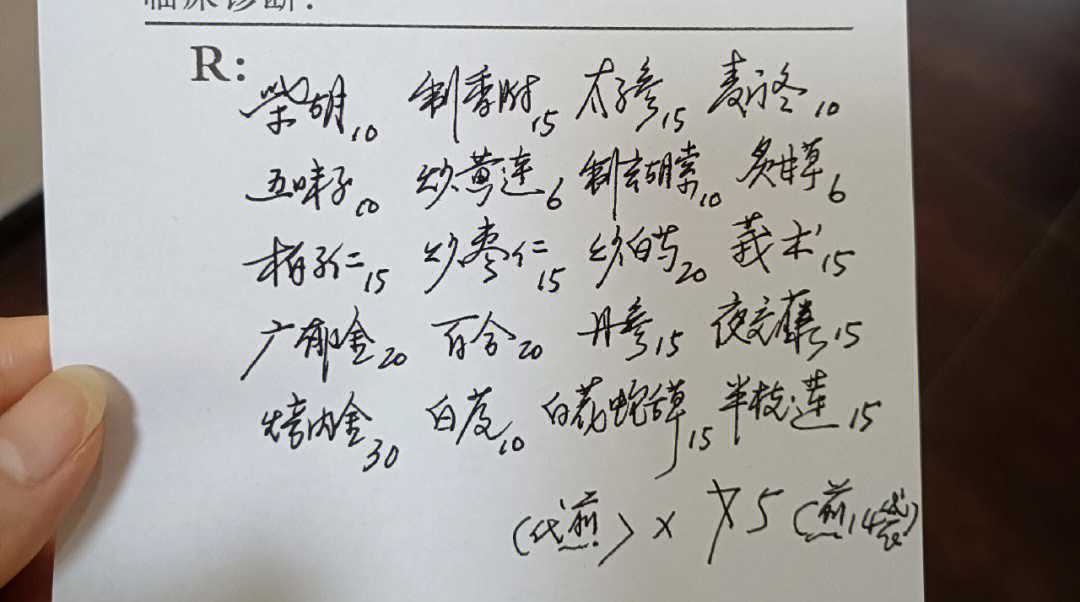 临床诊断:
R:
柴胡10 制香附15 太子参15 麦门冬10
五味子10 炒黄连6 制玄胡索10 炙甘草6
柏子仁15 炒枣仁15 炒白芍20 莪术15
广郁金20 百合20 丹参15 夜交藤15
焙内金30 白蔻10 白花蛇舌草15 半枝莲15
(代煎) × 75 (煎14袋)